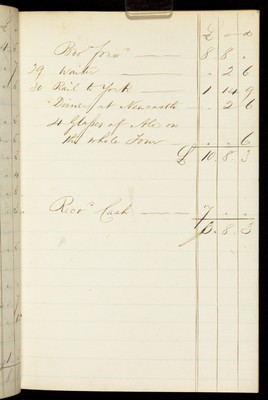 £ - d
Bro.t for.d — 8 8 .
29 Waiter — . 2 6
30 Rail to York — 1 14 9
Dinner at Newcastle — . 2 6
4 Glasses of Ale on
the whole Tour — . . 6
£ 10. 8 3
Rec.d Cash — 7 . .
£3. 8. 3